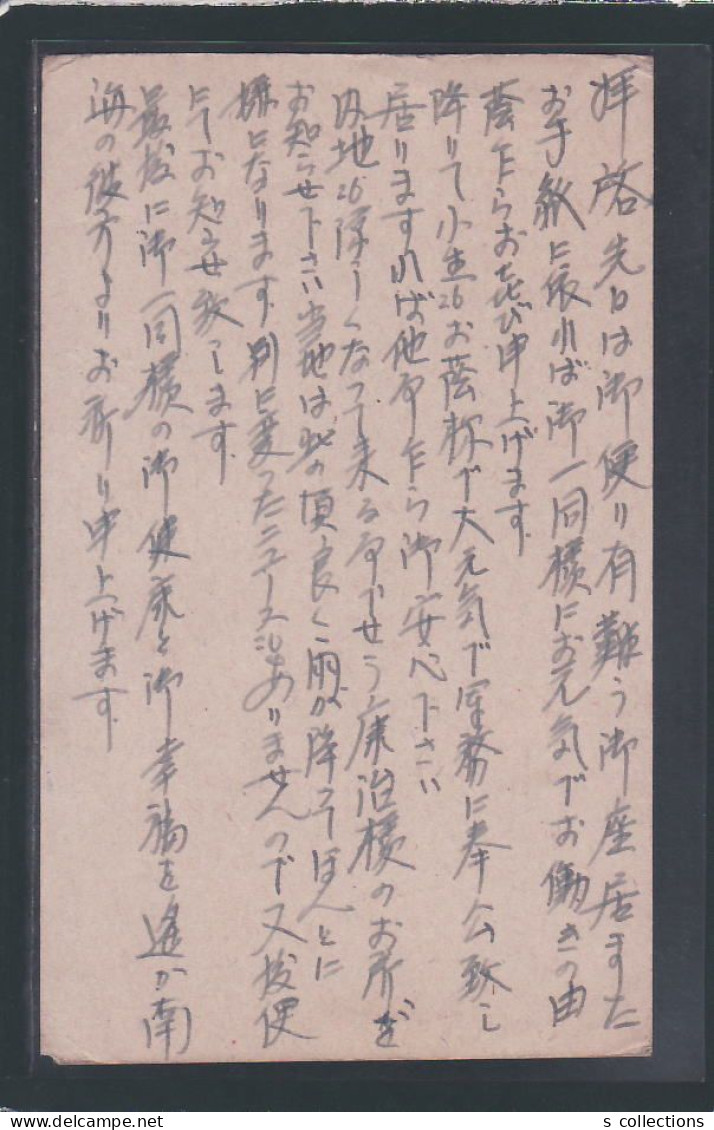 拝啓先日は御便り有難う御座居ました
お手紙に依れば御一同様にお元気でお働きの由
蔭乍らお喜び申上げます
降りて小生もお蔭様で大元気で軍務に奉公致し
居りますれば他事乍ら御安心下さい
内地も涼しくなって来る事でせう康治様のお所を
お知らせ下さい当地は此の頃良く雨が降ってほんとに
嫌になります.別に変ったニュースもありませんので又後便
にてお知らせ致します.
最後に御一同様の御健康と御幸福を遙か南
海の彼方よりお祈り申上げます.
s collections